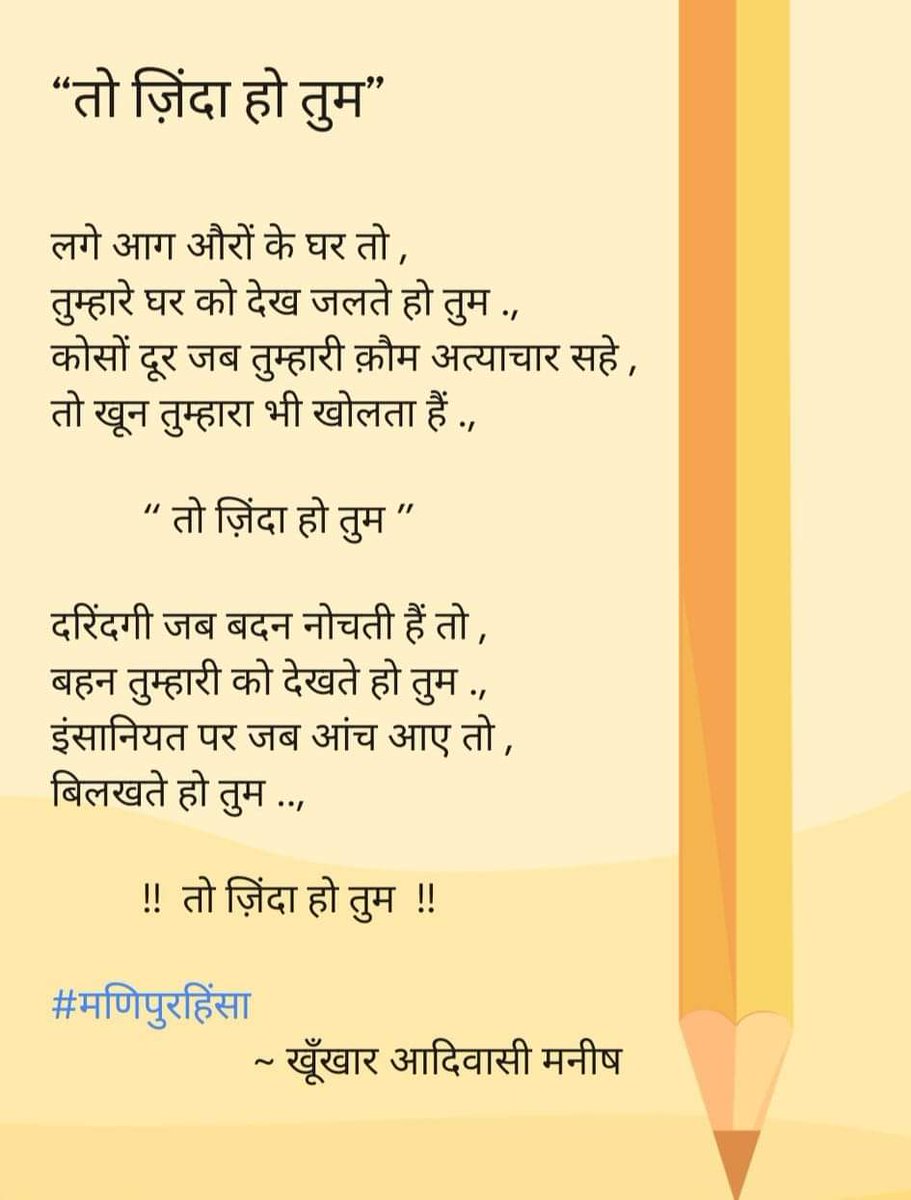 “तो ज़िंदा हो तुम”
लगे आग औरों के घर तो ,
तुम्हारे घर को देख जलते हो तुम .,
कोसों दूर जब तुम्हारी क़ौम अत्याचार सहे ,
तो खून तुम्हारा भी खोलता हैं .,
“ तो ज़िंदा हो तुम ”
दरिंदगी जब बदन नोचती हैं तो ,
बहन तुम्हारी को देखते हो तुम .,
इंसानियत पर जब आंच आए तो ,
बिलखते हो तुम ..,
!! तो ज़िंदा हो तुम !!
#मणिपुरहिंसा
~ खूँखार आदिवासी मनीष